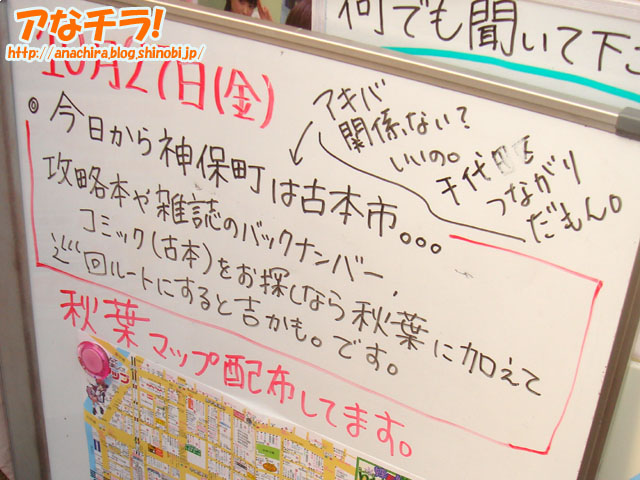 アなチラ!
http://anachira.blog.shinobi.jp/
何でも聞いて下
10月27日(金)
アキバ
関係ない?
いいの。
千代
つながり
だもん。
◎今日から神保町は古本市...
攻略本や雑誌のバックナンバー、
コミック(古本)をお探しなら秋葉に加えて
巡回ルートにすると吉かも。です。
秋葉マップ配布してます。